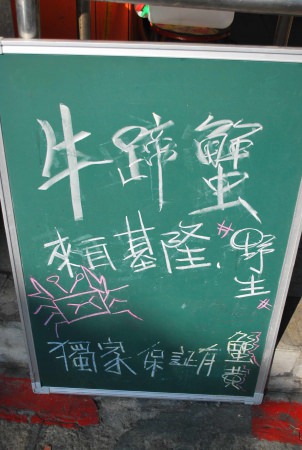 牛蹄蟹
來自基隆、#野生#
獨家保証有蟹黃